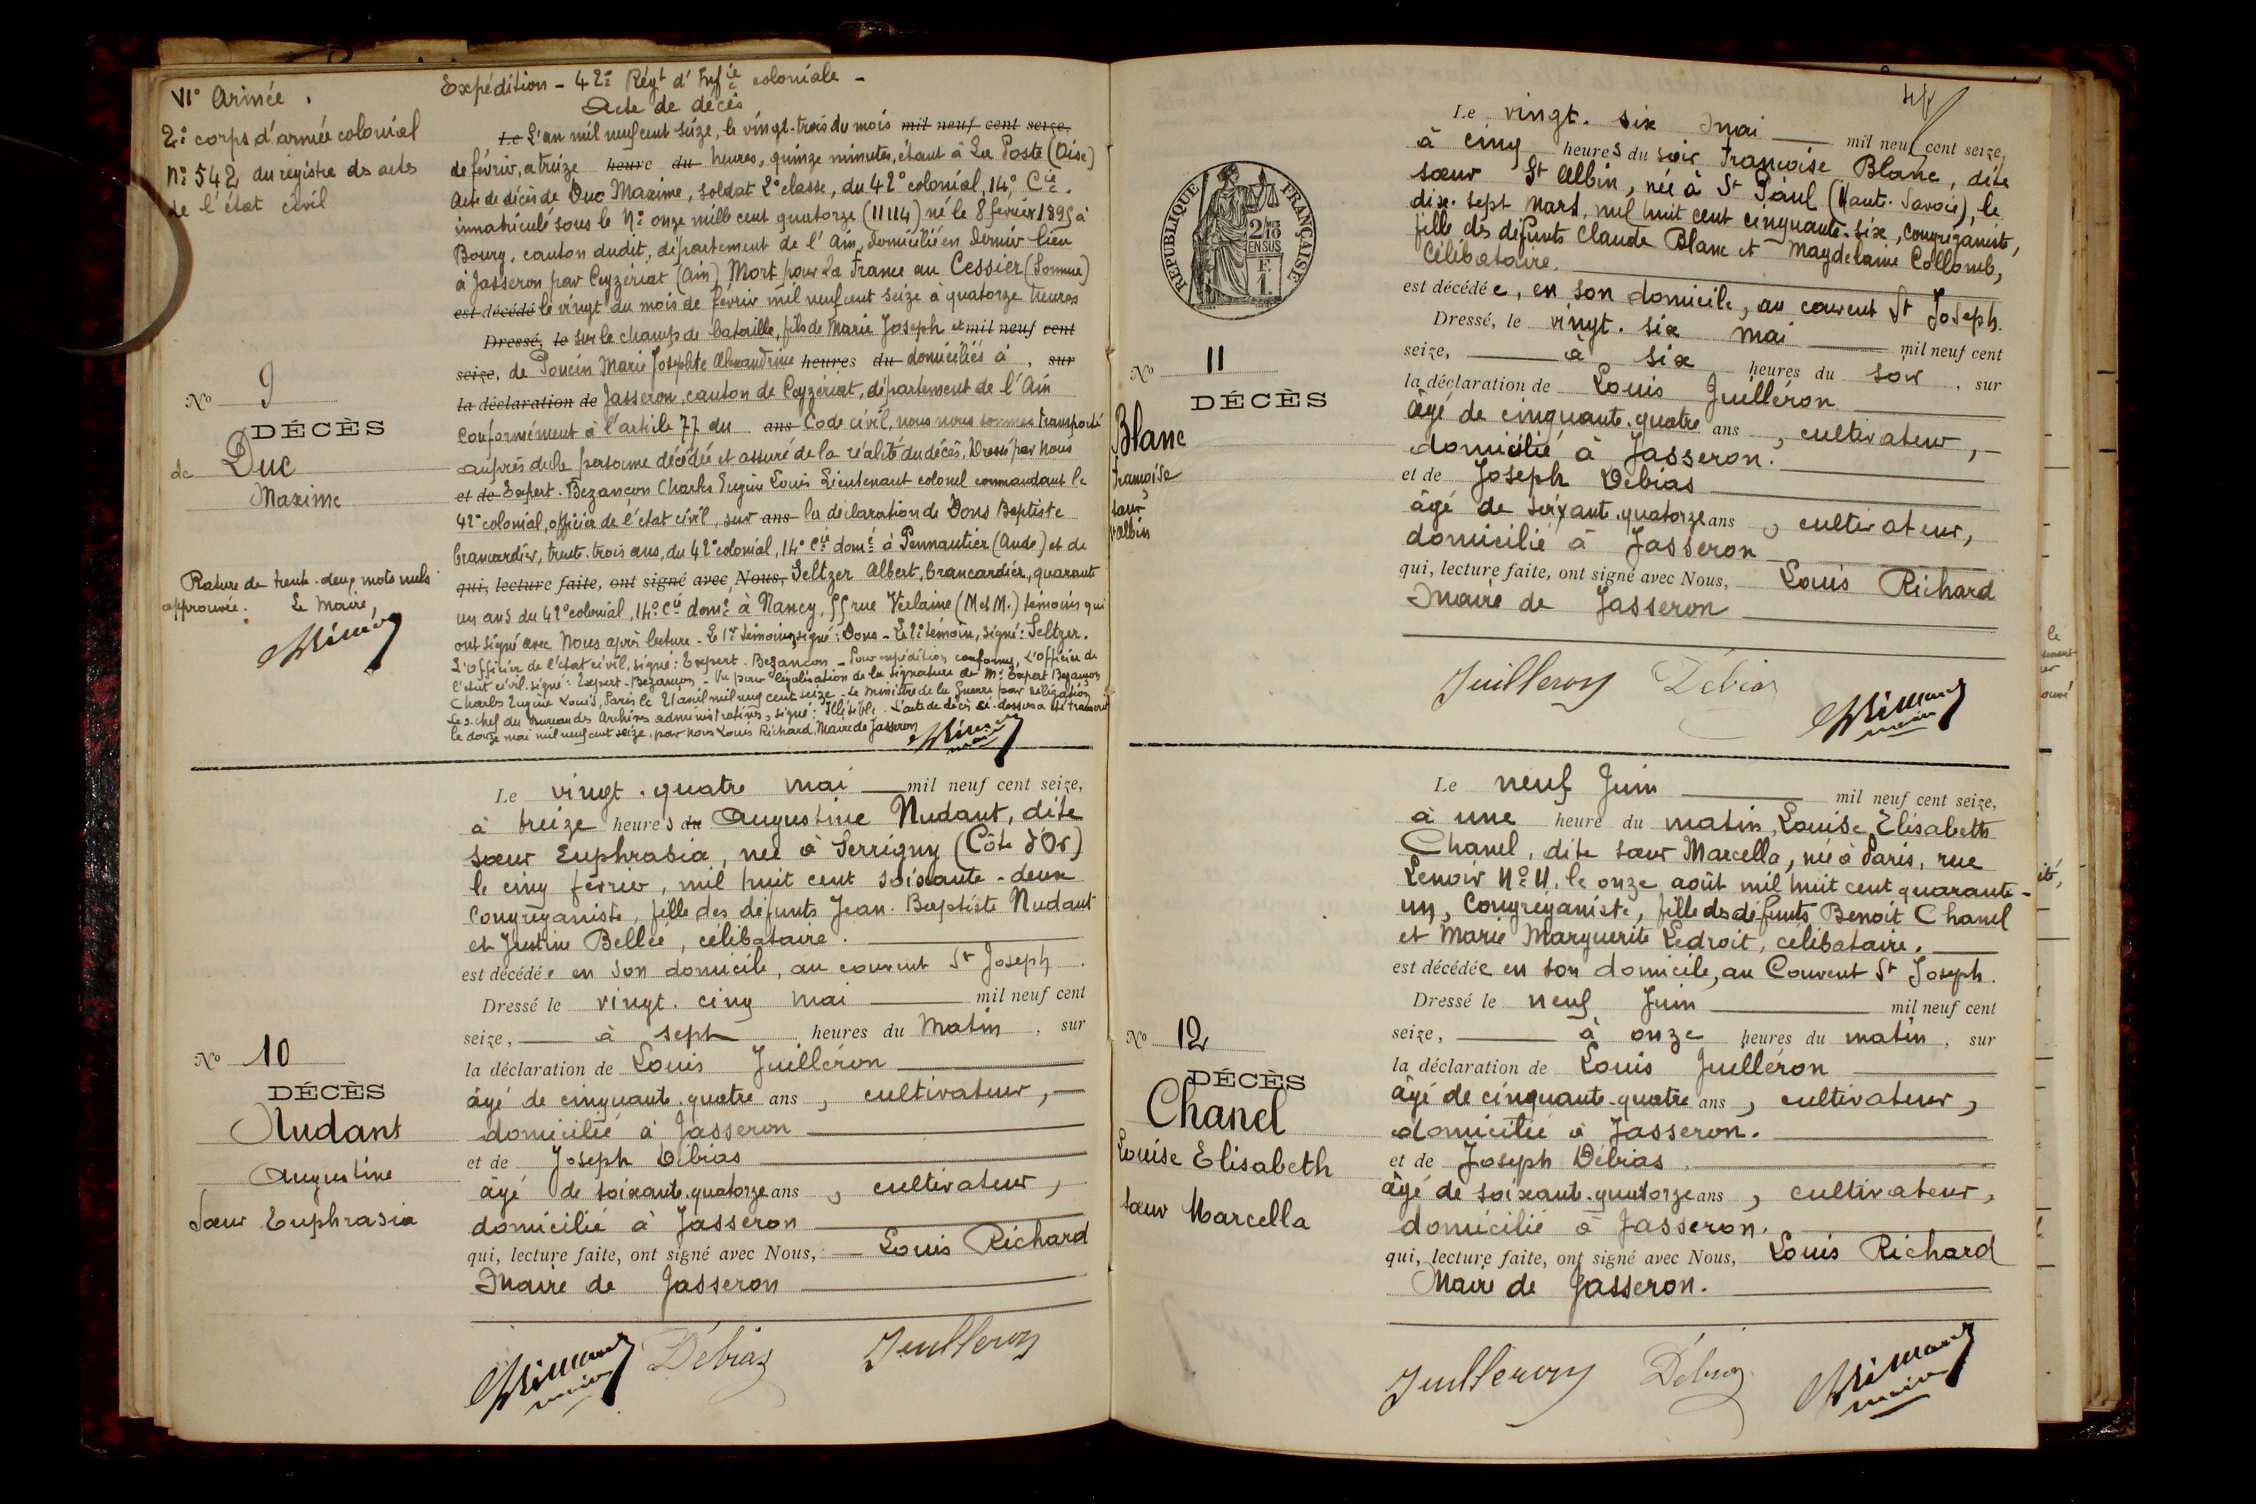 VIe Armée.
2e corps d'armée colonial
No 542 du registre des actes
de l'état civil
No 9
DÉCÈS
de Duc
Maxime
Rature de trente-deux mots nuls
approuvée. Le Maire,
Expédition - 42e Régt d'Infie coloniale -
Acte de décès
Le L'an mil neuf cent seize, le vingt-trois du mois mil neuf cent seize,
de février, à treize heure du heures, quinze minutes, étant à La Poste (Oise)
Acte de décès de Duc Maxime, soldat 2e classe, du 42e colonial, 14e Cie.
immatriculé sous le No onze mille cent quatorze (11114) né le 8 février 1895 à
Bourg, canton dudit, département de l'Ain, domicilié en dernier lieu
à Jasseron par Ceyzériat (Ain) Mort pour la France au Cessier (Somme)
est décédé le vingt du mois de février mil neuf cent seize à quatorze heures
Dressé, le sur le champ de bataille, fils de Marie Joseph et mil neuf cent
seize, de Poncin Marie Josephte Alexandrine heures du domiciliés à , sur
la déclaration de Jasseron, canton de Ceyzériat, département de l'Ain
Conformément à l'article 77 du ans Code civil, nous nous sommes transporté
auprès de la personne décédée et assuré de la réalité du décès. Dressé par Nous
et de Expert-Bezançon Charles Eugène Louis Lieutenant colonel commandant le
42e colonial, officier de l'état civil, sur ans la déclaration de Dons Baptiste
brancardier, trente-trois ans, du 42e colonial, 14e Cie domé à Pennautier (Aude) et de
qui, lecture faite, ont signé avec Nous, Seltzer Albert, brancardier, quarante
un ans du 42e colonial, 14e Cie domé à Nancy, 55 rue Verlaine (M et M.) témoins qui
ont signé avec Nous après lecture - Le 1er témoin, signé: Dons - Le 2e témoin, signé: Seltzer.
L'Officier de l'état civil, signé: Expert-Bezançon - Pour expédition conforme, L'Officier de
l'état civil, signé: Expert-Bezançon - Vu pour légalisation de la signature de Mr Expert Bezançon
Charles Eugène Louis, Paris le 21 avril mil neuf cent seize - Le Ministre de la Guerre par délégation
Le s. chef du Bureau des Archives administratives, signé: Illisible - L'acte de décès ci-dessus a été transcrit
le douze mai mil neuf cent seize, par nous Louis Richard, Maire de Jasseron
No 10
DÉCÈS
Nudant
Augustine
Sœur Euphrasia
Le vingt-quatre mai mil neuf cent seize,
à treize heures du Augustine Nudant, dite
sœur Euphrasia, née à Serrigny (Côte d'Or)
le cinq février, mil huit cent soixante-deux
Congréganiste, fille des défunts Jean-Baptiste Nudant
et Justine Bellée, célibataire.
est décédée en son domicile, au couvent St Joseph.
Dressé le vingt-cinq mai mil neuf cent
seize, à sept heures du Matin, sur
la déclaration de Louis Juilléron
âgé de cinquante-quatre ans, cultivateur,
domicilié à Jasseron
et de Joseph Débias
âgé de soixante-quatorze ans, cultivateur,
domicilié à Jasseron
qui, lecture faite, ont signé avec Nous, Louis Richard
Maire de Jasseron
Débias Juilleron
RÉPUBLIQUE FRANÇAISE
No 11
DÉCÈS
Blanc
Françoise
sœur
St Albin
Le vingt-six Mai mil neuf cent seize,
à cinq heures du soir Françoise Blanc, dite
sœur St Albin, née à St Paul (Haute-Savoie), le
dix-sept Mars, mil huit cent cinquante-six, congréganiste,
fille des défunts Claude Blanc et Maydelaine Collomb,
Célibataire.
est décédée, en son domicile, au couvent St Joseph.
Dressé, le vingt-six mai mil neuf cent
seize, à six heures du soir, sur
la déclaration de Louis Juilléron
âgé de cinquante-quatre ans, cultivateur,
domicilié à Jasseron.
et de Joseph Débias
âgé de soixante-quatorze ans, cultivateur,
domicilié à Jasseron
qui, lecture faite, ont signé avec Nous, Louis Richard
Maire de Jasseron
Juilleron Débias
No 12
DÉCÈS
Chanel
Louise Elisabeth
sœur Marcella
Le neuf Juin mil neuf cent seize,
à une heure du matin, Louise Elisabeth
Chanel, dite sœur Marcella, née à Paris, rue
Lenoir No 11, le onze août mil huit cent quarante-
un, Congréganiste, fille des défunts Benoit Chanel
et Marie Marguerite Ledroit, célibataire.
est décédée en son domicile, au Couvent St Joseph.
Dressé le neuf Juin mil neuf cent
seize, à onze heures du matin, sur
la déclaration de Louis Juilléron
âgé de cinquante-quatre ans, cultivateur,
domicilié à Jasseron.
et de Joseph Débias
âgé de soixante-quatorze ans, cultivateur,
domicilié à Jasseron.
qui, lecture faite, ont signé avec Nous, Louis Richard
Maire de Jasseron.
Juilleron Débias